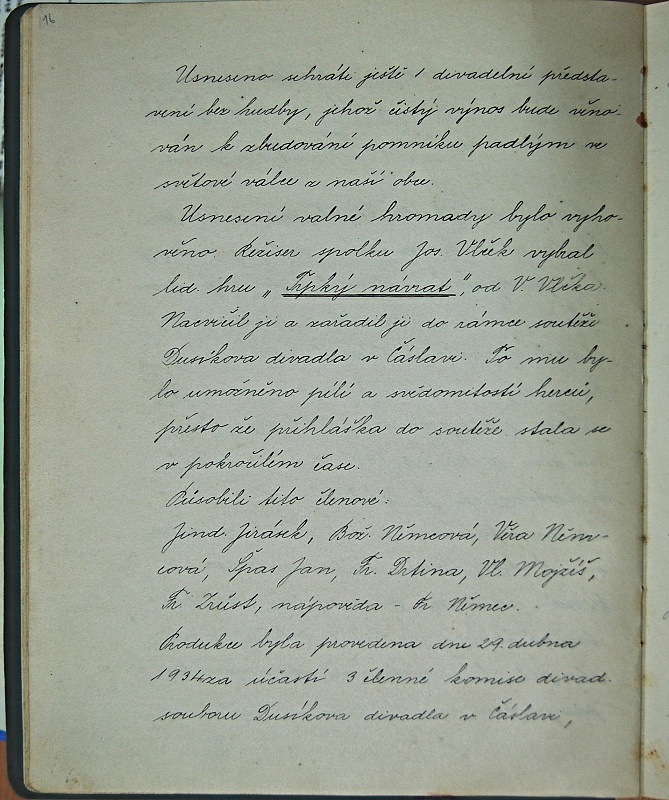 16
Usneseno sehráti ještě 1 divadelní předsta-
vení bez hudby, jehož čistý výnos bude věno-
ván k zbudování pomníku padlým ve
světové válce z naší obce.
Usnesení valné hromady bylo vyho-
věno. Režiser spolku Jos. Vlček vybral
lid. hru „Trpký návrat", od V. Vlčka.
Nacvičil ji a zařadil ji do rámce soutěže
Dusíkova divadla v Čáslavi. To mu by-
lo umožněno pílí a svědomitostí herců,
přesto že přihláška do soutěže stala se
v pokročilém čase.
Působili tito členové:
Jind. Jirásek, Bož. Němcová, Věra Něm-
cová, Špas Jan, Fr. Drtina, Vl. Mojžíš,
Fr. Zrůst, nápověda - Fr. Němec.
Produkce byla provedena dne 29. dubna
1934 za účasti 3 členné komise divad.
souboru Dusíkova divadla v Čáslavi,